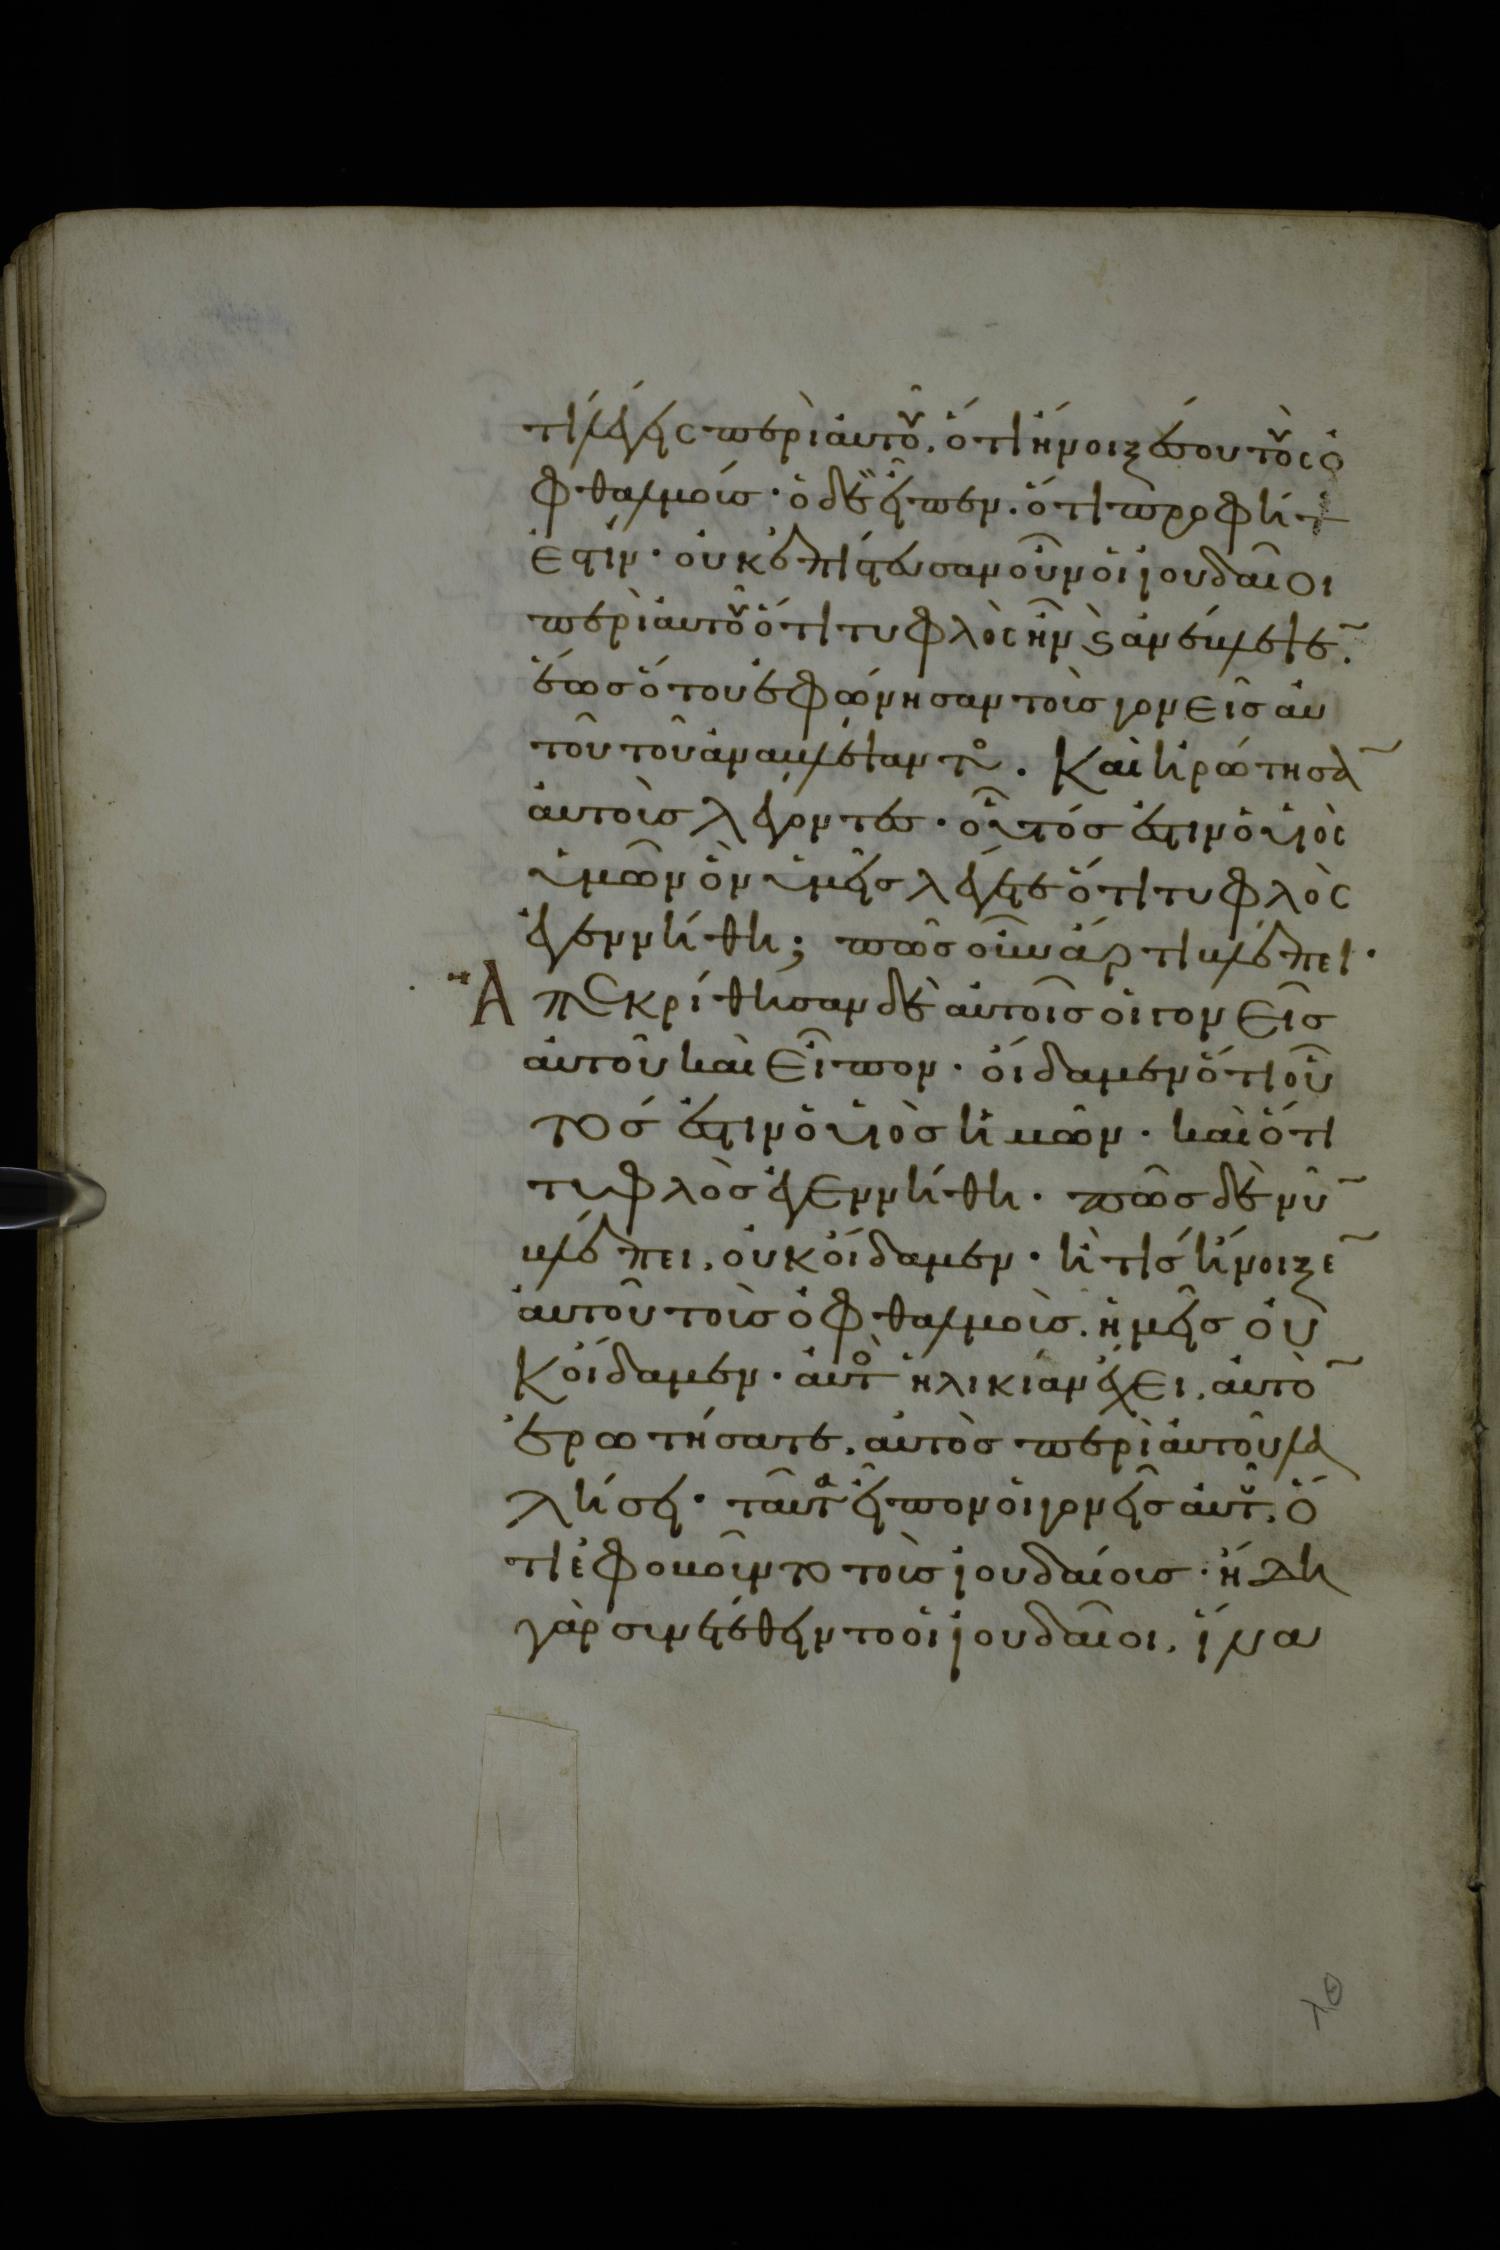 τί λέγεις περὶ αὐτοῦ. ὅτι ἤνοιξέ σου τοὺς ὀ
φθαλμοίς· ὁ δὲ εἶπεν. ὅτι προφήτ
ἐστίν· οὐκ ἐπίστευσαν οὖν οἱ ἰουδαῖοι
περὶ αὐτοῦ ὅτι τυφλὸς ἦν ϗ ἀνέβλεψε.
ἕως ὅτου ἐφώνησαν τοὺς γονεῖς αὐ
τοῦ τοῦ ἀναβλέψαντο. Καὶ ἠρώτησα
αὐτοὺς λέγοντες· οὗτός ἐστιν ὁ υἱὸς
ὑμῶν ὃν ὑμεῖς λέγετε ὅτι τυφλὸς
ἐγεννήθη; πῶς οὖν ἄρτι βλέπει·
Ἀπεκρίθησαν δὲ αὐτοῖς οἱ γονεῖς
αὐτοῦ καὶ εἶπον· οἴδαμεν ὅτι οὗ
τός ἐστιν ὁ υἱὸς ἡμῶν· καὶ ὅτι
τυφλὸς ἐγεννήθη· πῶς δὲ νῦ
βλέπει, οὐκ οἴδαμεν· ἢ τίς ἤνοιξε
αὐτοῦ τοὺς ὀφθαλμοὺς. ἡμεῖς οὐ
κ οἴδαμεν· αὐτὸ ἡλικίαν ἔχει, αὐτὸ
ἐρωτήσατε. αὐτὸς περὶ αὐτοῦ λα
λήσει· ταῦτα εἶπον οἱ γονεῖς αὐτοῦ, ὅ
τι ἐφοβοῦντο τοὺς ἰουδαίους· ἤδη
γὰρ συνετέθειντο οἱ ἰουδαῖοι, ἵνα
λθ